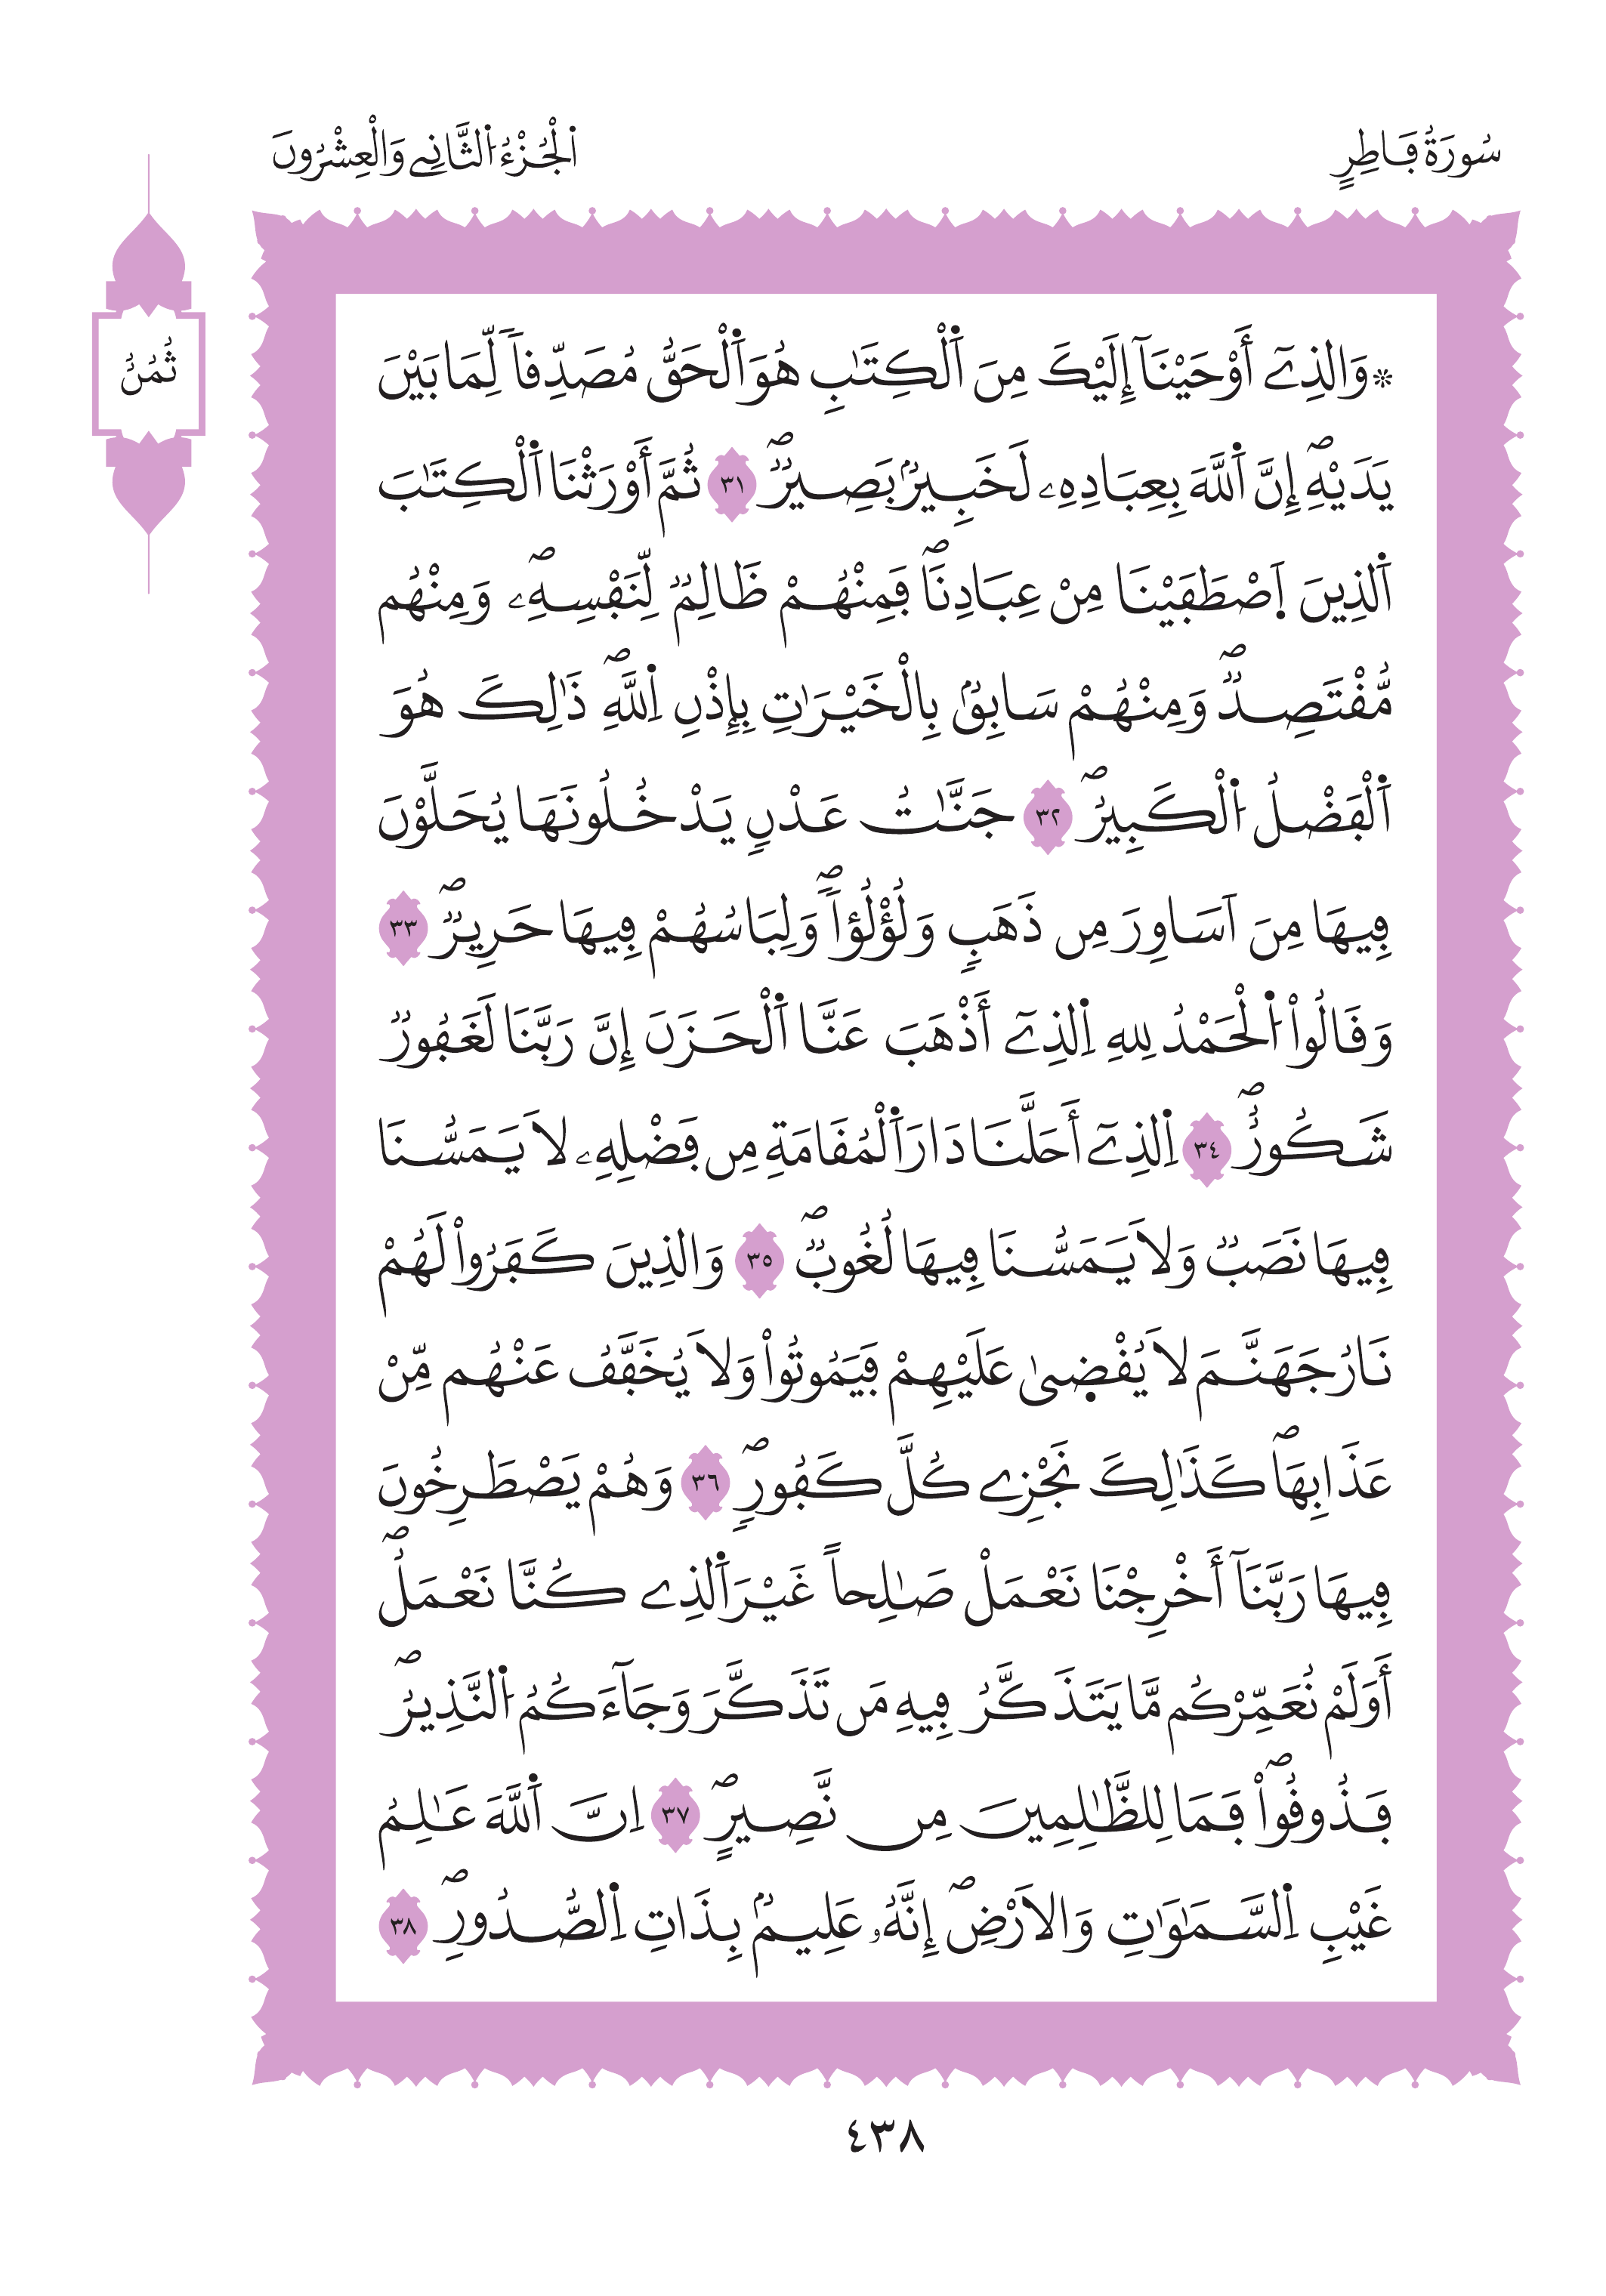 سُورَةُ فَاطِرٍ
اَلْجُزْءُ اُلثَّانِے وَالْعِشْرُونَ
ثُمُنُ
* وَالذِےٓ أَوْحَيْنَآ إِلَيْكَ مِنَ اَ۬لْكِتَٰبِ هُوَ اَ۬لْحَقُّ مُصَدِّقاٗ لِّمَا بَيْنَ
يَدَيْهِۖ إِنَّ اَ۬للَّهَ بِعِبَادِهِۦ لَخَبِيرُۢ بَصِيرٞۖ ٣١ ثُمَّ أَوْرَثْنَا اَ۬لْكِتَٰبَ
اَ۬لذِينَ اَ۪صْطَفَيْنَا مِنْ عِبَادِنَاۖ فَمِنْهُمْ ظَالِمٞ لِّنَفْسِهِۦۖ وَمِنْهُم
مُّقْتَصِدٞۖ وَمِنْهُمْ سَابِقُۢ بِالْخَيْرَٰتِ بِإِذْنِ اِ۬للَّهِۖ ذَٰلِكَ هُوَ
اَ۬لْفَضْلُ اُ۬لْكَبِيرُۖ ٣٢ جَنَّٰتُ عَدْنٖ يَدْخُلُونَهَا يُحَلَّوْنَ
فِيهَا مِنَ اَسَاوِرَ مِن ذَهَبٖ وَلُؤْلُؤاٗۖ وَلِبَاسُهُمْ فِيهَا حَرِيرٞۖ ٣٣
وَقَالُواْ اُ۬لْحَمْدُ لِلهِ اِ۬لذِےٓ أَذْهَبَ عَنَّا اَ۬لْحَزَنَ إِنَّ رَبَّنَا لَغَفُورٞ
شَكُورٌۖ ٣٤ اِ۬لذِےٓ أَحَلَّنَا دَارَ اَ۬لْمُقَامَةِ مِن فَضْلِهِۦ لَا يَمَسُّنَا
فِيهَا نَصَبٞ وَلَا يَمَسُّنَا فِيهَا لُغُوبٞۖ ٣٥ وَالذِينَ كَفَرُواْ لَهُمْ
نَارُ جَهَنَّمَ لَا يُقْض۪يٰ عَلَيْهِمْ فَيَمُوتُواْ وَلَا يُخَفَّفُ عَنْهُم مِّنْ
عَذَابِهَاۖ كَذَٰلِكَ نَجْزِے كُلَّ كَفُورٖۖ ٣٦ وَهُمْ يَصْطَرِخُونَ
فِيهَا رَبَّنَآ أَخْرِجْنَا نَعْمَلْ صَٰلِحاً غَيْرَ اَ۬لذِے كُنَّا نَعْمَلُۖ
أَوَلَمْ نُعَمِّرْكُم مَّا يَتَذَكَّرُ فِيهِ مَن تَذَكَّرَ وَجَآءَكُمُ اُ۬لنَّذِيرُۖ
فَذُوقُواْۖ فَمَا لِلظَّٰلِمِينَ مِن نَّصِيرٍۖ ٣٧ اِنَّ اَ۬للَّهَ عَٰلِمُ
غَيْبِ اِ۬لسَّمَٰوَٰتِ وَالَارْضِۖ إِنَّهُۥ عَلِيمُۢ بِذَاتِ اِ۬لصُّدُورِۖ ٣٨
٤٣٨